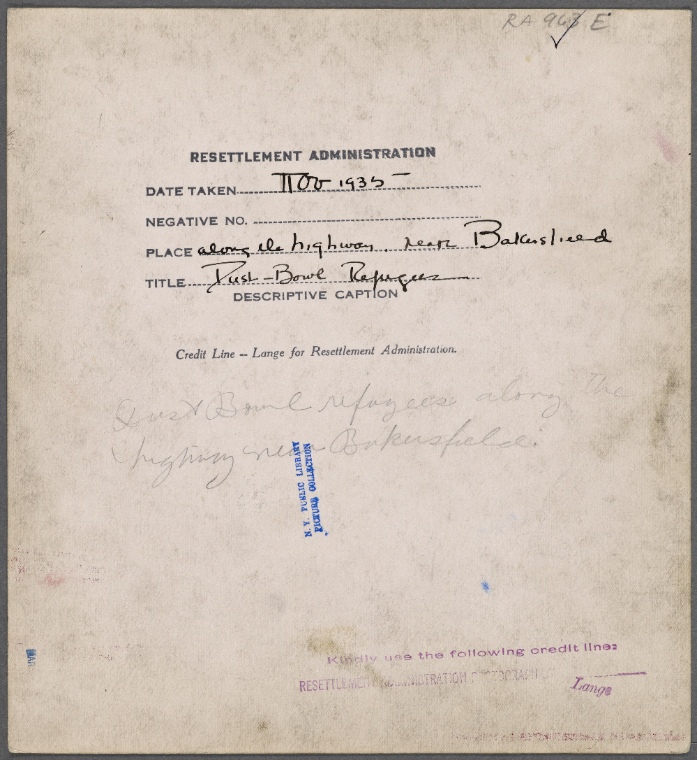 RA 963 E
RESETTLEMENT ADMINISTRATION
DATE TAKEN Nov 1935
NEGATIVE NO.
PLACE along the highway. near Bakersfield
TITLE Dust-Bowl Refugees
DESCRIPTIVE CAPTION
Credit Line -- Lange for Resettlement Administration.
Dust Bowl refugees along the
highway near Bakersfield.
N. Y. PUBLIC LIBRARY
PICTURE COLLECTION
Kindly use the following credit line:
RESETTLEMENT ADMINISTRATION PHOTOGRAPH BY
Lange